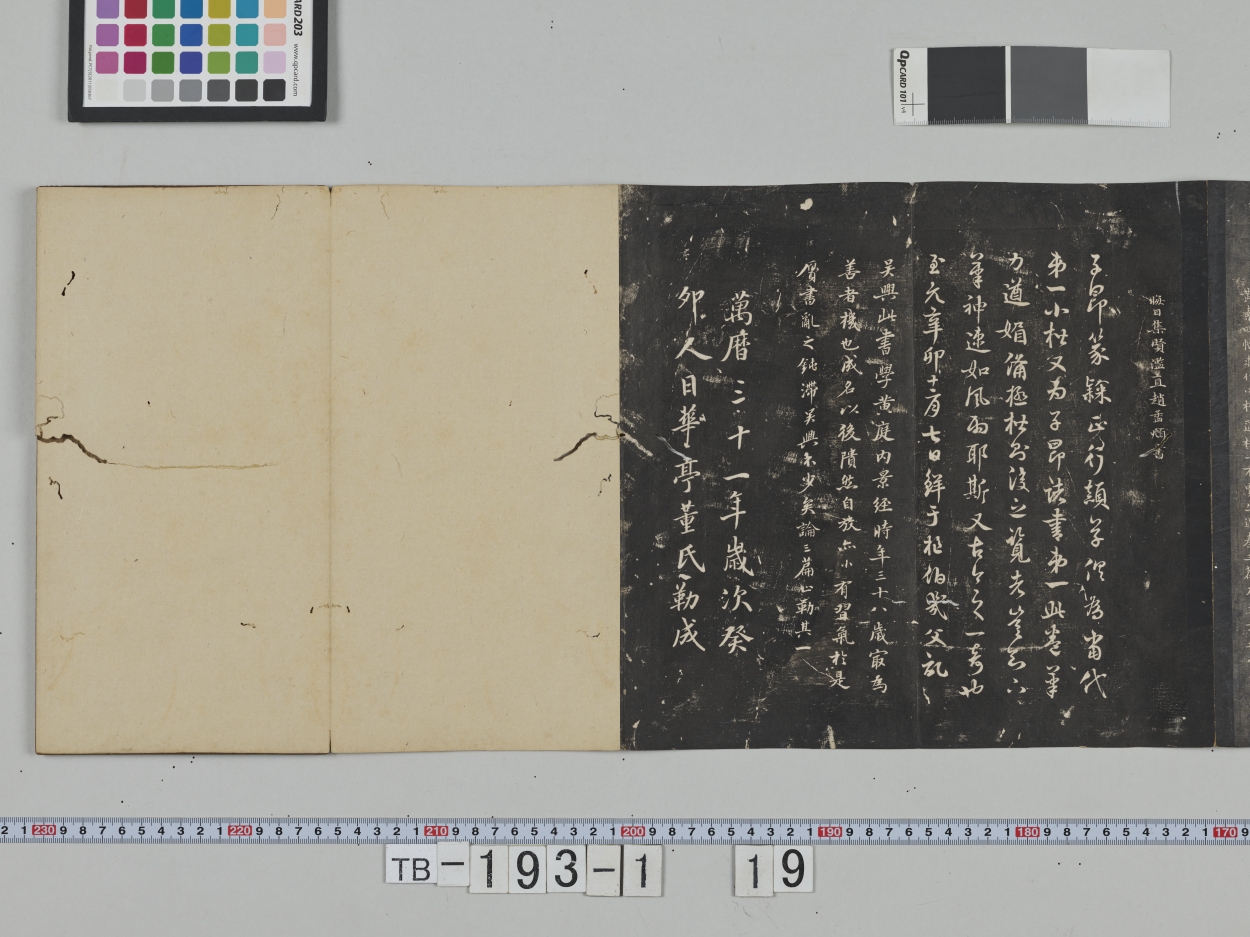 晦日集賢濫直趙孟頫書
子昂篆隸正行顛草俱為當代
弟一小楷又為子昂諸書弟一此卷筆
力遒媚備極楷則後之覽者豈知下
筆神速如風雨耶斯又古今之一奇也
至元辛卯十二月七日鮮于樞伯幾父記
吴興此書學黃庭內景經時年三十八歲㝡為
善者機也成名以後隤然自放亦小有習氣於是
贗書亂之鈍滯吴興不少矣論三篇止勒其一
萬曆三十一年歲次癸
卯人日華亭董氏勒成
CARD 203
www.qpcard.com
QPCARD 101 v4
2 1 230 9 8 7 6 5 4 3 2 1 220 9 8 7 6 5 4 3 2 1 210 9 8 7 6 5 4 3 2 1 200 9 8 7 6 5 4 3 2 1 190 9 8 7 6 5 4 3 2 1 180 9 8 7 6 5 4 3 2 1 170 9
TB-193-1 19